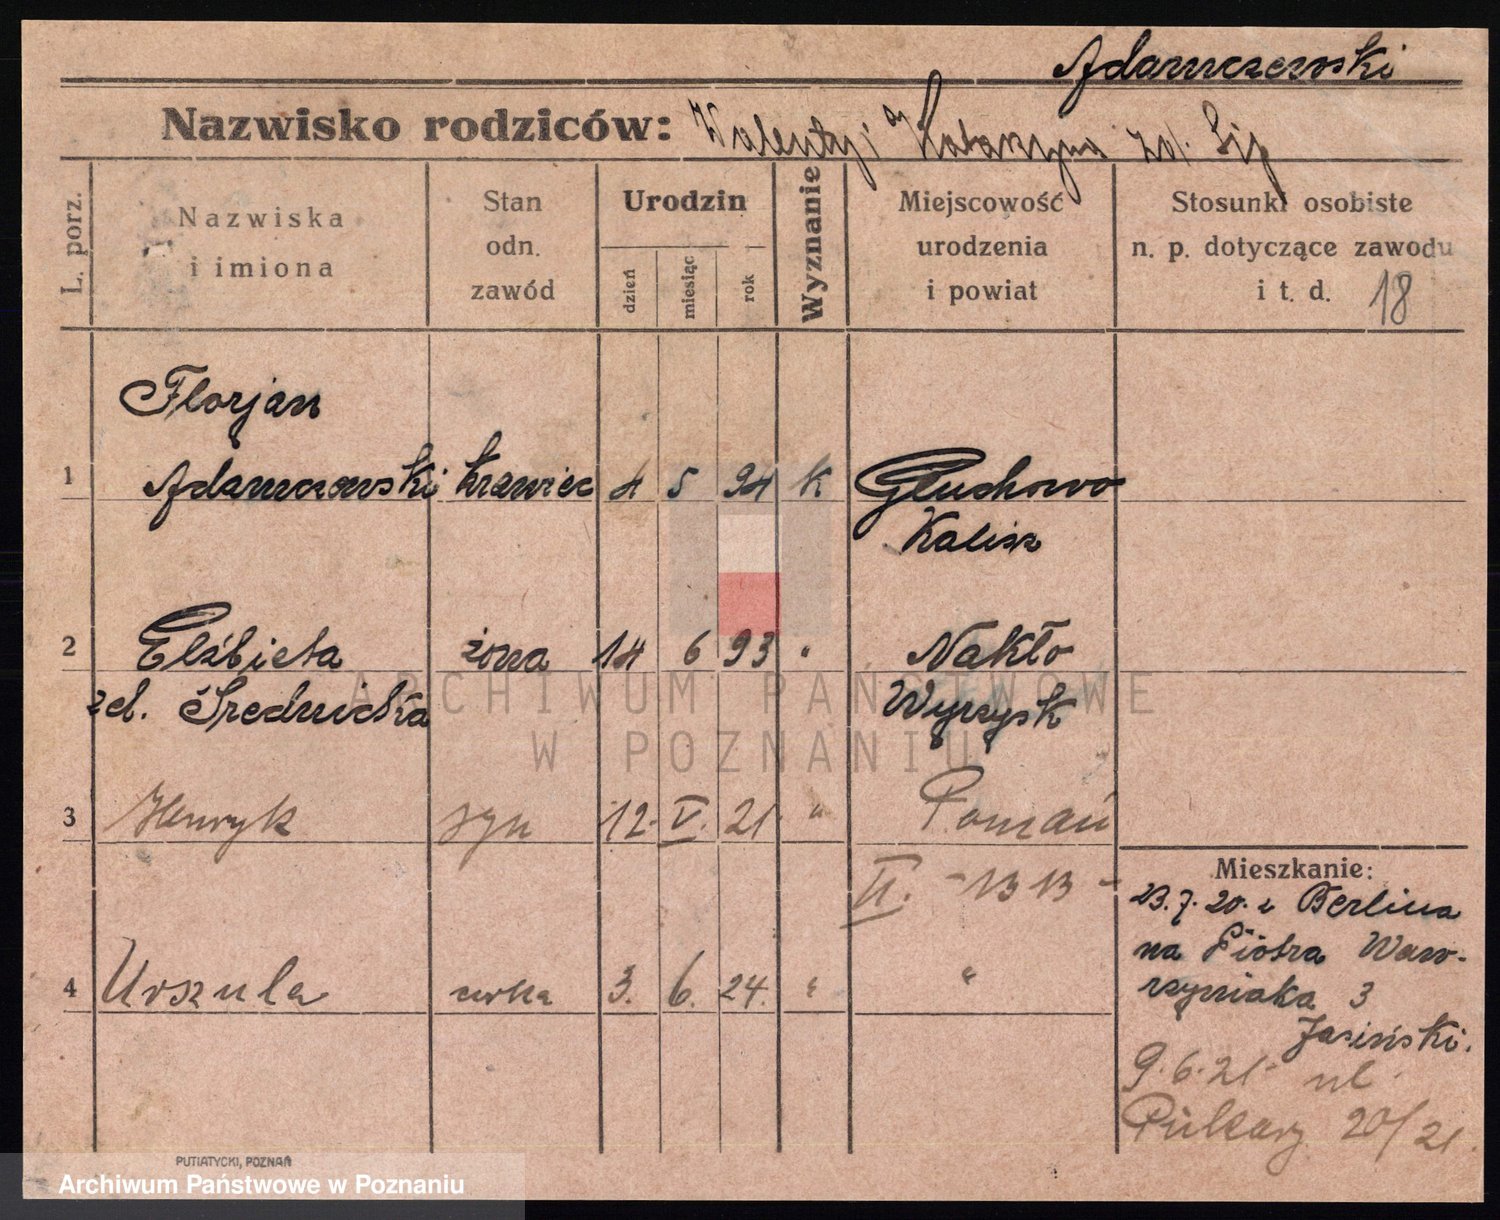 Adamczewski
Nazwisko rodziców: Walenty i Katarzyna
L. porz.
Nazwiska i imiona
Stan odn. zawód
Urodzin
dzień
miesiąc
rok
Wyznanie
Miejscowość urodzenia i powiat
Stosunki osobiste
n. p. dotyczące zawodu
i t. d. 18
Florjan
1 Adamczewski krawiec 4 5 94 K Głuchowo
Kalisz
2 Elżbieta żona 14 6 93 " Nakło
zd. Średnicka Wyrzysk
3 Henryk syn 12. V. 21 " Poznań
II. - 1313 -
4 Urszula córka 3. 6. 24. " "
Mieszkanie:
23.7.20. z Berlina
na Piotra Waw-
rzyniaka 3
Jasiński.
9.6.21 ul.
Piekary 20/21.
PUTIATYCKI, POZNAŃ
ARCHIWUM PAŃSTWOWE
W POZNANIU
Archiwum Państwowe w Poznaniu